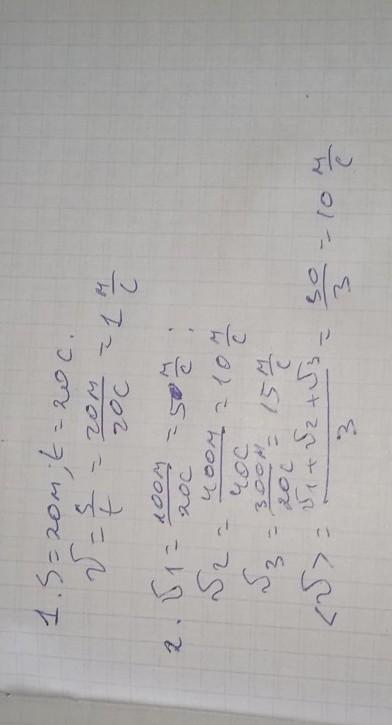 1. S = 20м; t = 20с.
v = S/t = 20м/20с = 1 м/с
2. v1 = 100м/20с = 5 м/с;
v2 = 400м/40с = 10 м/с
v3 = 300м/20с = 15 м/с
<v> = v1 + v2 + v3/3 = 30/3 = 10 м/с